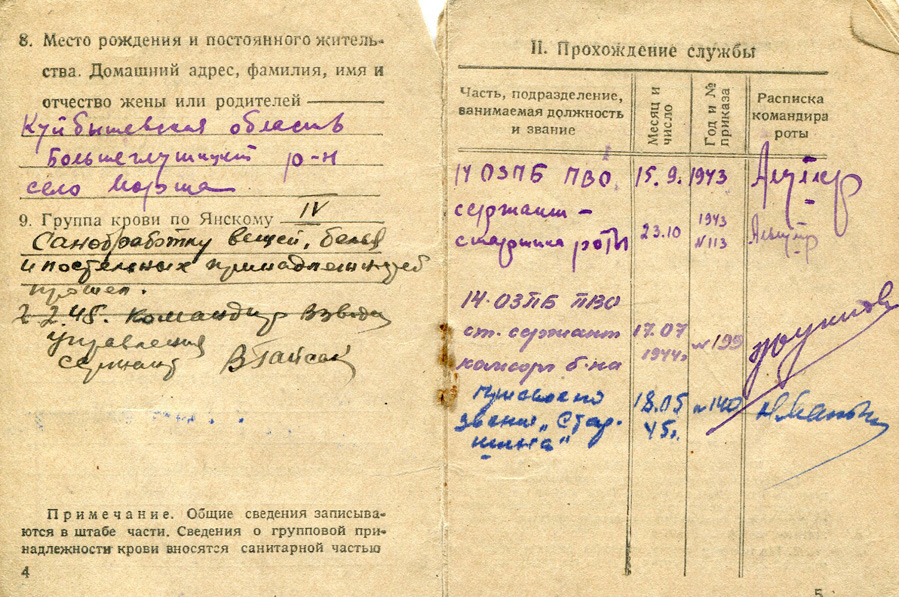 8. Место рождения и постоянного житель-
ства. Домашний адрес, фамилия, имя и
отчество жены или родителей
Куйбышевская область
Большеглушицкий р-н
село Морша
9. Группа крови по Янскому IV
Санобработку вещей, белья
и постельных принадлежностей
прошел.
2.2.45. Командир взвода
управления
сержант
Примечание. Общие сведения записыва-
ются в штабе части. Сведения о групповой при-
надлежности крови вносятся санитарной частью
4
II. Прохождение службы
Часть, подразделение,
занимаемая должность
и звание
Месяц и
число
Год и №
приказа
Расписка
командира
роты
14 ОЗПБ ПВО. 15.9. 1943
сержант –
старшина роты 23.10 1943 N113
14.ОЗПБ ПВО
ст. сержант 17.07 1944г №199
комсорг б-на
присвоено 18.05 №140
звание „Стар- 45г.
шина"
5